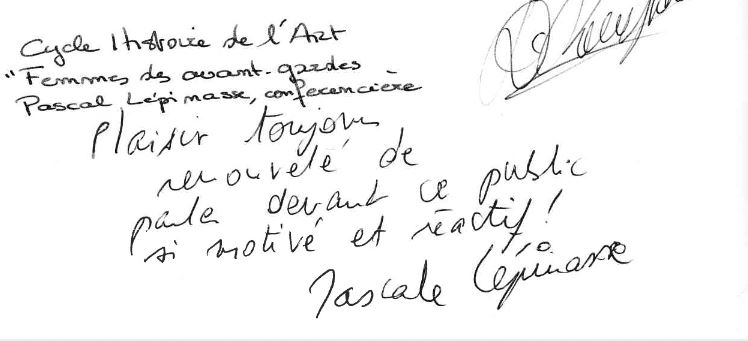 Cycle Histoire de l'Art
"Femmes des avant-gardes
Pascal Lépinasse, conferencière
Plaisir toujours
renouvelé de
parler devant ce public
si motivé et réactif !
Pascale Lépinasse